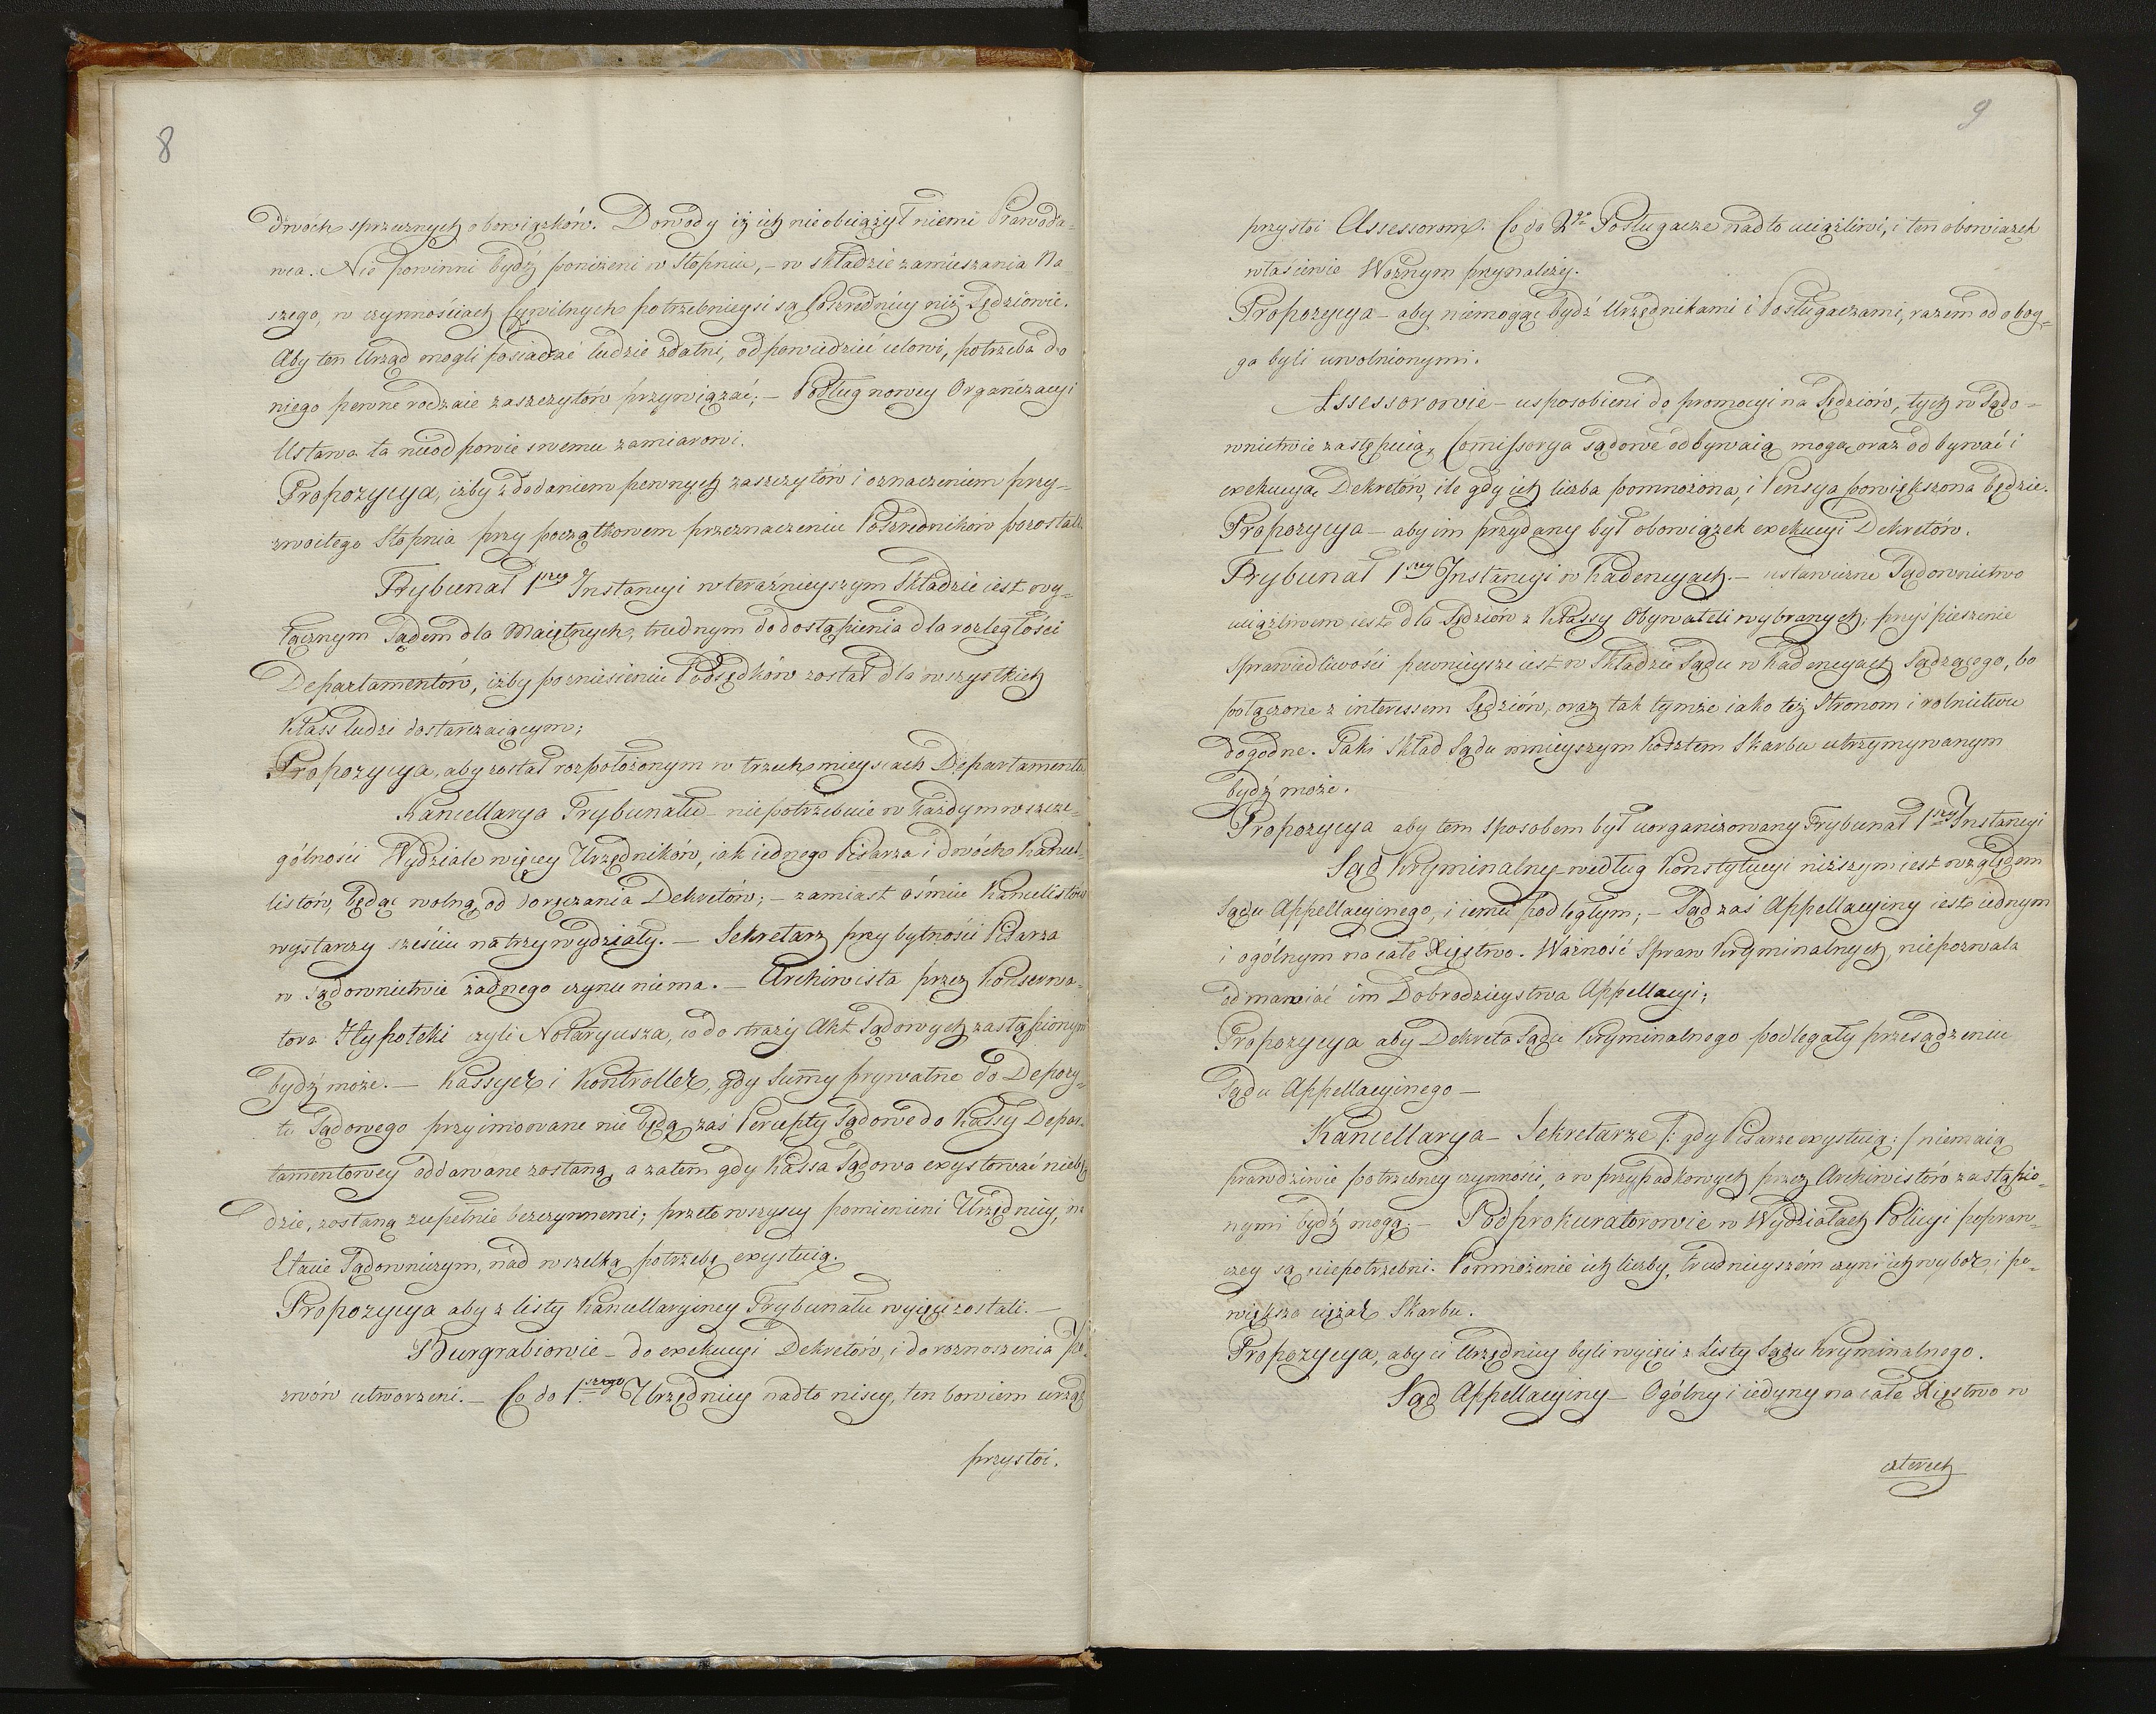 8
dwóch sprzecznych obowiązków. Dowody iż ich nieobciążył niemi Prawoda-
wca. Nie powinni bydź poniżeni w stopniu, – w składzie zamieszania Na-
szego, w czynnościach Cywilnych potrzebnieysi są Pośrednicy niż Sędziowie.
Aby ten Urząd mogli posiadać ludzie zdatni, odpowiedzieć celowi, potrzeba do
niego pewne rodzaie zaszczytów przywiązać; – Podług nowey Organizacyi
Ustawa ta nieodpowie swemu zamiarowi.
Propozycya, iżby z dodaniem pewnych zaszczytów i oznaczeniem przy-
zwoitego Stopnia przy początkowem przeznaczeniu Pośredników pozostali.
Trybunał 1szey Instancyi w teraźnieyszym Składzie iest wy-
łącznym Sądem dla Maiętnych, trudnym do dostąpienia dla rozległości
Departamentów, iżby po zniesieniu Podsędków został dla wszystkich
Klass ludzi dostarczaiącym;
Propozycya, aby został rozpołożonym w trzech mieyscach Departamentu
Kancellarya Trybunału – niepotrzebuie w każdym w szcze-
gólności Wydziale więcey Urzędników, iak iednego Pisarza i dwóch Kancel-
listów, będąc wolną od doręczania Dekretów; – zamiast ośmiu Kancelistów
wystarczy sześciu na trzy wydziały. – Sekretarz przy bytności Pisarza
w Sądownictwie żadnego czynu niema. – Archiwista przez Konserwa-
tora Hypoteki czyli Notaryusza, co do straży Akt Sądowych zastąpionym
bydź może. – Kassyer i Kontroller, gdy Summy prywatne do Depozy-
tu Sądowego przyimowane nie będą, zaś Percepty Sądowe do Kassy Depar-
tamentowey oddawane zostaną, a zatem gdy Kassa Sądowa exystować niebę-
dzie, zostaną zupełnie bezczynnemi; przeto wszyscy pomienieni Urzędnicy, na
Etacie Sądowniczym, nad wszelką potrzebę exystuią.
Propozycya aby z listy Kancellaryiney Trybunału wyięci zostali. –
Burgrabiowie – do exekucyi Dekretów, i do roznoszenia Po-
zwów utworzeni. – Co do 1szego Urzędnicy nadto niscy, ten bowiem urząd
przystoi.
9
przystoi Assessorom. Co do 2go Posługacze nadto uciążliwi, i ten obowiązek
właściwie Woźnym przynależy.
Propozycya – aby niemogąc bydź Urzędnikami i Posługaczami, razem od oboy-
ga byli uwolnionymi.
Assessorowie – usposobieni do promocyi na Sędziów, tych w Sądo-
wnictwie zastępuią, Comissorya sądowe odbywaią, mogą oraz odbywać i
exekucyą Dekretów, ile gdy ich liczba pomnożona, i Pensya powiększona będzie.
Propozycya – aby im przydany był obowiązek exekucyi Dekretów.
Trybunał 1szey Instancyi w Kadencyach. – ustawiczne Sądownictwo
uciążliwem iest dla Sędziów z Klassy Obywateli wybranych, przyśpieszenie
Sprawiedliwości pewnieysze iest w Składzie Sądu w Kadencyach Sądzącego, bo
połączone z interessem Sędziów, oraz tak tymże iako też Stronom i rolnictwu
dogodne. Taki Skład Sądu mnieyszym kosztem Skarbu utrzymywanym
bydź może.
Propozycya aby tem sposobem był uorganizowany Trybunał 1szey Instancyi
Sąd Kryminalny – według Konstytucyi niższym iest względem
Sądu Appellacyinego, i iemu podległym; – Sąd zaś Appellacyiny iest iednym
i ogólnym na całe Xięstwo. Ważność Spraw Kryminalnych, niepozwala
odmawiać im Dobrodzieystwa Appellacyi;
Propozycya aby Dekreta Sądu Kryminalnego podlegały przesądzeniu
Sądu Appellacyinego –
Kancellarya – Sekretarze /: gdy Pisarze exystuią :/ niemaią
prawdziwie potrzebney czynności, a w przypadkowych przez Archiwistów zastąpio-
nymi bydź mogą. – Podprokuratorowie w Wydziałach Policyi popraw-
czey są niepotrzebni. Pomnożenie ich liczby, trudnieyszém czyni ich wybór, i po-
większa ciężar Skarbu.
Propozycya, aby ci Urzędnicy byli wyięci z Listy Sądu Kryminalnego.
Sąd Appellacyiny – Ogólny i iedyny na całe Xięstwo w
czterech